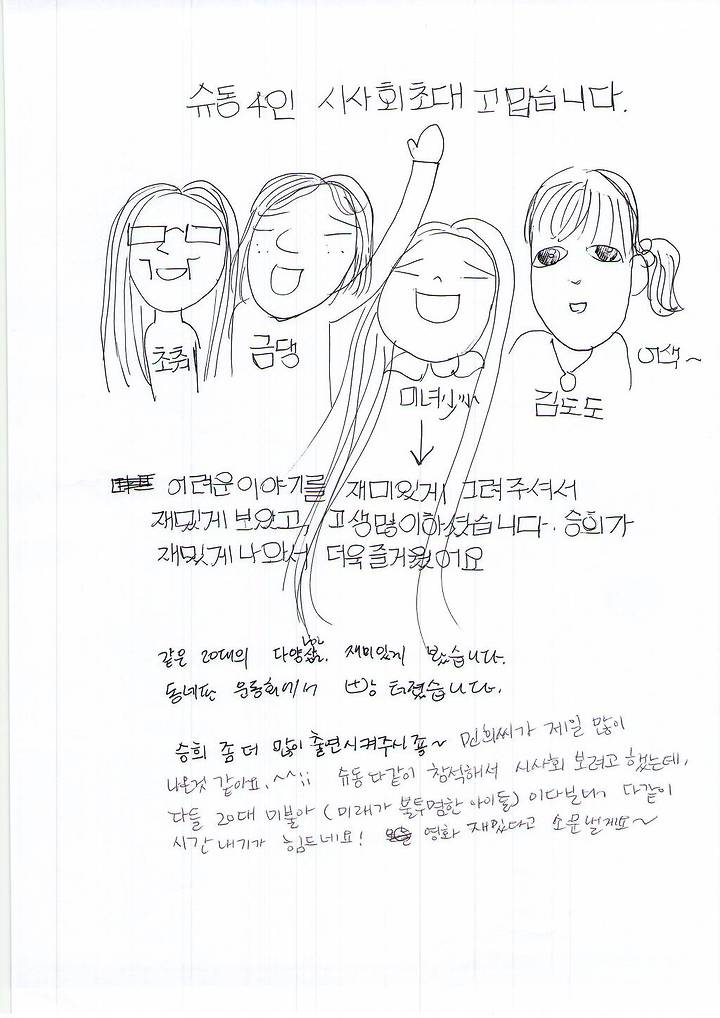 슈동 4인 시사회초대 고맙습니다.
초췌
금댕
미녀
김도도
어색~
어려운 이야기를 재미있게 그려주셔서
재밌게 보았고, 고생많이하셨습니다. 승희가
재밌게 나와서 더욱 즐거웠어요
같은 20대의 다양한 삶. 재미있게 봤습니다.
동네판 운동회에서 빵 터졌습니다.
승희 좀 더 많이 출연시켜주시죵~ 민희씨가 제일 많이
나온것 같아요. ^^;; 슈동 다같이 참석해서 시사회 보려고 했는데,
다들 20대 미불아 (미래가 불투명한 아이들) 이다보니 다같이
시간내기가 힘드네요! 영화 재밌다고 소문낼게요~